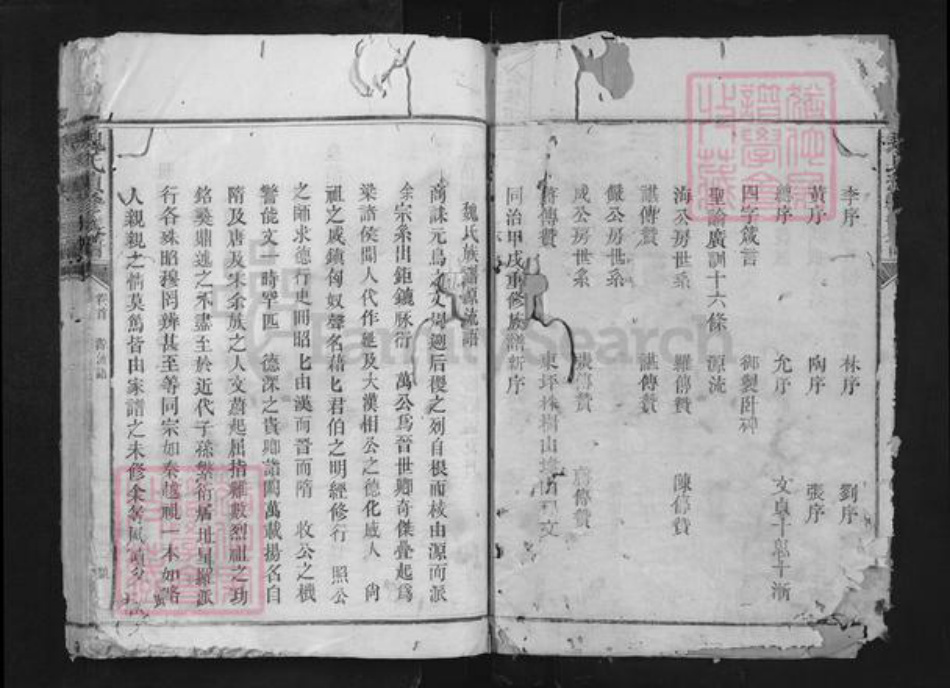 李序 林序 劉序
黃序 陶序 張序
總序 允序 文貞十
四字箴言 御製卧碑
聖諭廣訓十六條 源流
海公房世系 羅傳贊 陳傳贊
諶傳贊 諶傳贊
嚴公房世系
成公房世系 張傳贊 傳贊
蔣傳贊 東坪株樹山 文
同治甲戌重修族譜新序
魏氏族譜源流語
商詠元鳥之文周廻后稷之列自根而枝由源而派
余宗系出鉅鹿脉衍 萬公爲晉世卿奇傑疊起爲
梁諸侯聞人代作延及大漢相公之德化感人 尙
祖之威鎮匈奴聲名藉匕君伯之明經修行 照公
之師求德行史冊昭匕由漢而晉而隋 收公之機
警能文一時罕匹 德深之貴卿詣闕萬載揚名自
隋及唐及宋余族之人文蔚起屈指難數烈祖之功
銘彝鼎述之不盡至於近代子孫繁衍居址星羅派
行各殊昭穆罔辨甚至等同宗如秦越視一本如路
人親親之情莫篤皆由家譜之未修余等
FamilySearch